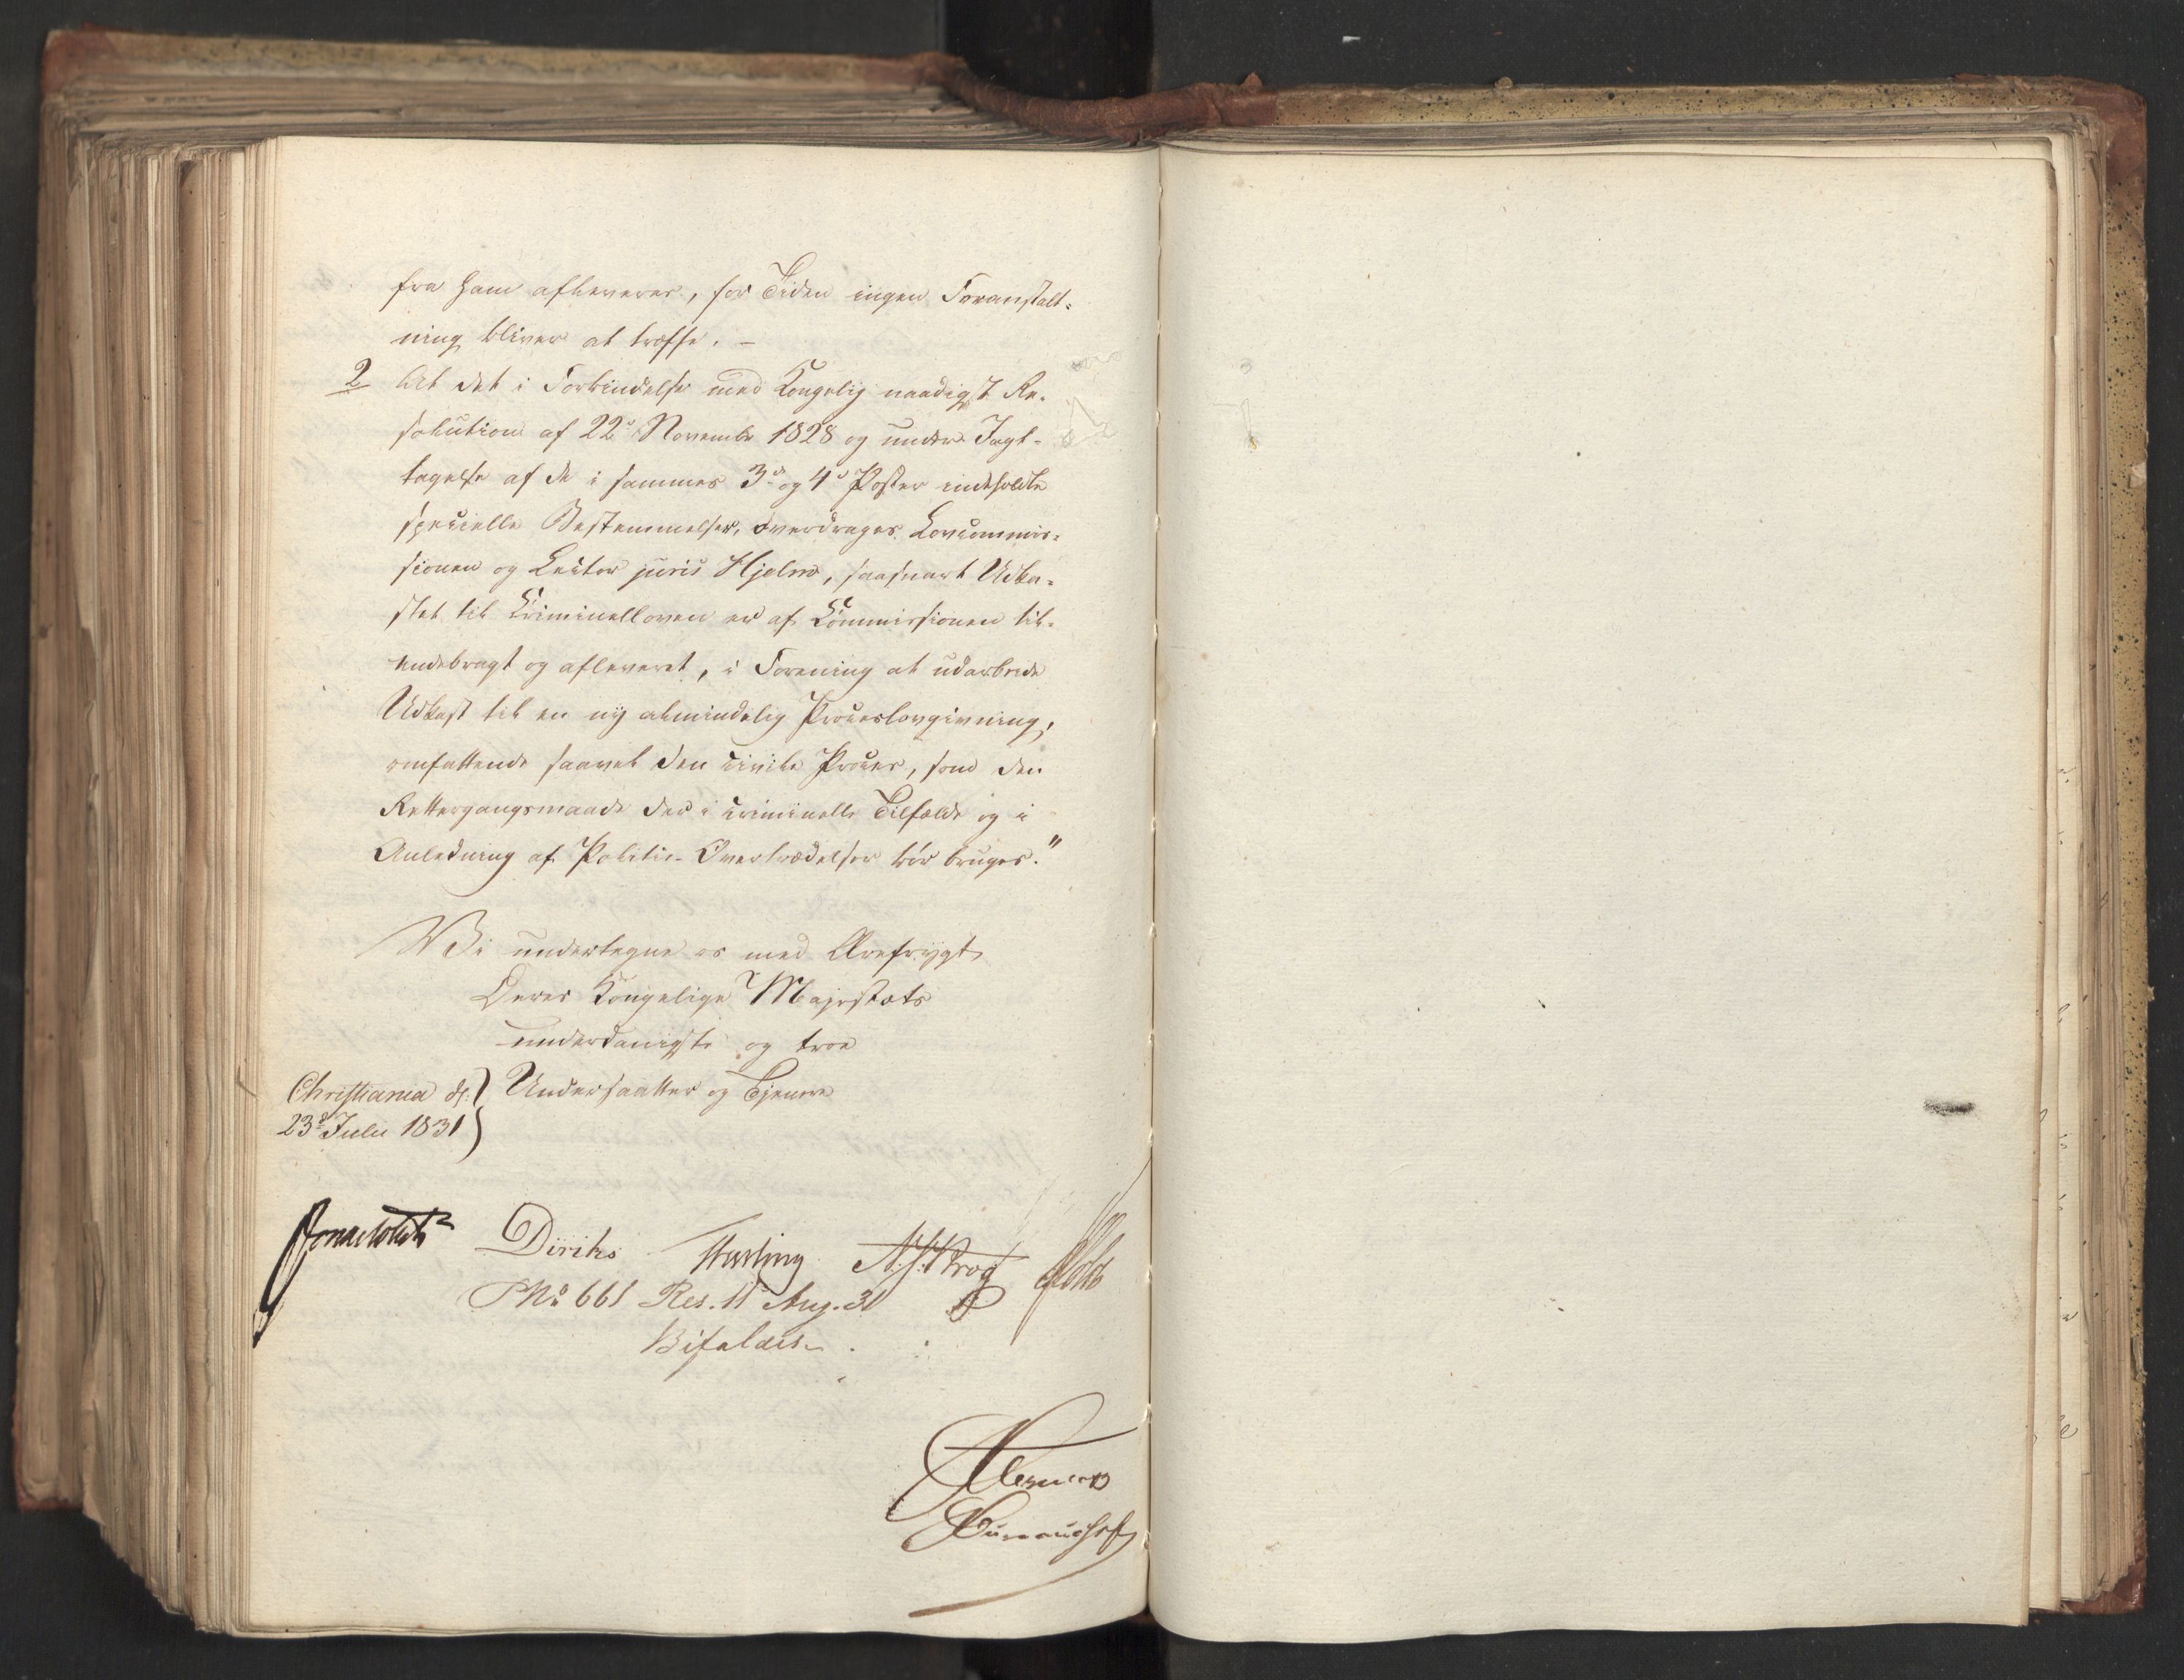 fra ham afleveres, for Tiden ingen Foranstalt-
ning bliver at træffe. –
2 At det i Forbindelse med Kongelig naadigst Re-
solution af 22de Novembr 1828 og under Iagt-
tagelse af de i sammes 3die og 4de Poster indeholdte
specielle Bestemmelser, overdrages Lovcommis-
sionen og Lector juris Hjelm, saasnart Udka-
stet til Criminalloven er af Commissionen til-
endebragt og afleveret, i Forening at udarbeide
Udkast til en ny almindelig Proceslovgivning,
omfattende saavel den civile Proces, som den
Rettergangsmaade der i criminelle Tilfælde og i
Anledning af Politie-Overtrædelser bør bruges."
Vi undertegne os med Ærefrygt
Deres Kongelige Majestæts
underdanigste og troe
Christiania d. Undersaatter og Tjenere
23de Julii 1831
Jonas Collett Diriks Fasting N. J. Krog Holst
No 661 Res. 11 Aug. 31
Bifaldes.